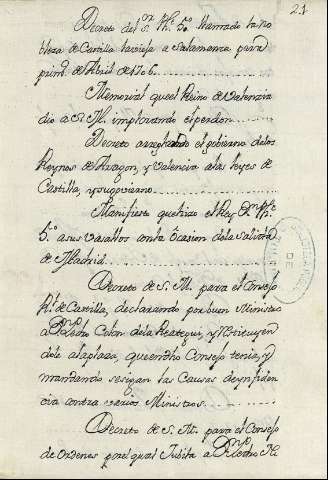 21
Decreto del S.or Ph.e 5.o llamado la no
bleza de Castilla la vieja a Salamanca para
prim.o de Abril de 1706.
Memorial que el Reino de Valenzia
dio a S. M. implorando el perdon
Decreto arreglando el gobierno delos
Reynos de Aragon, y Valencia alas leyes de
Castilla, y su govierno
Manifiesto que hizo el Rey D.n Ph.e
5.o a sus vasallos con la ocasion dela salida
de Madrid
Decreto de S. M. para el Consejo
R.l de Castilla, declarando por buen Ministro
a D.n Pedro Colon de la Reategui, y restituyen
dole ala plaza, que en dho Consejo tenia, y
mandando se sigan las Causas de ynfiden
cia contra varios Ministros
Decreto de S. M. para el Consejo
de Ordenes por el qual Jubila a D.n Pedro
DE